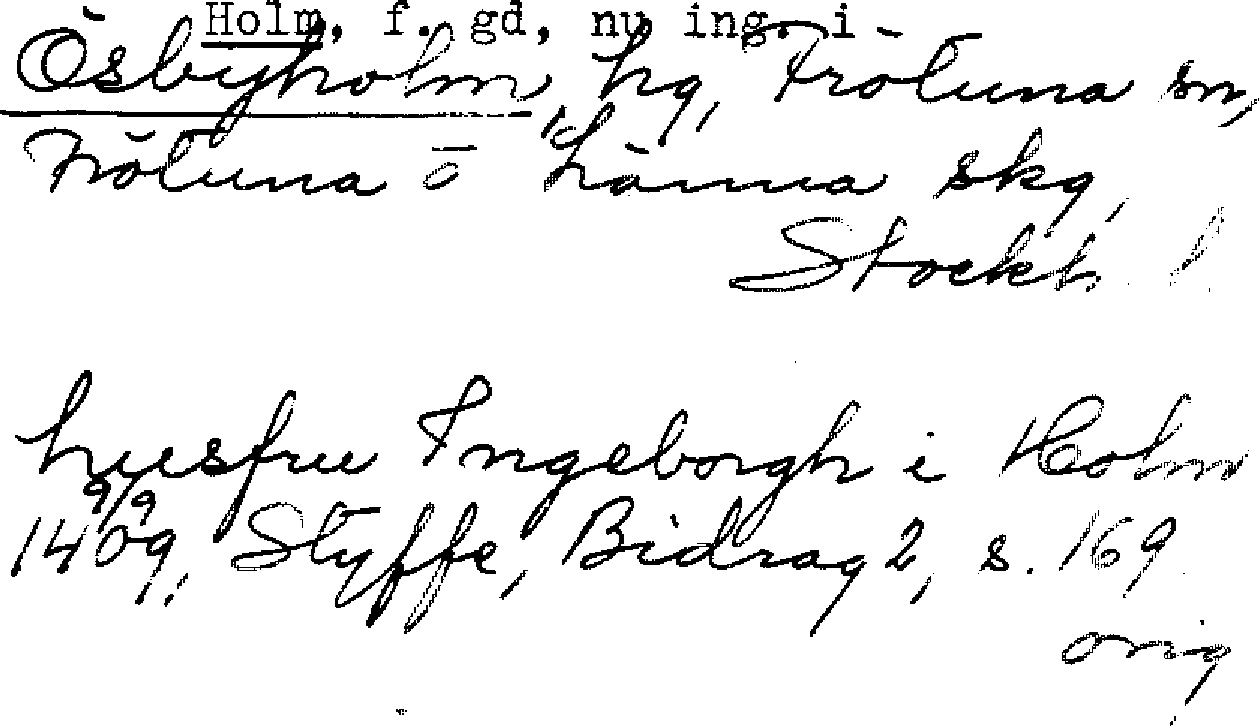 Holm, f. gd, nu ing. i
Ösbyholm, hg, Frötuna sn,
Frötuna o Länna skg,
Stockh. l.
husfru Ingeborgh i Holm
9/9
1409, Styffe, Bidrag 2, s. 169
orig